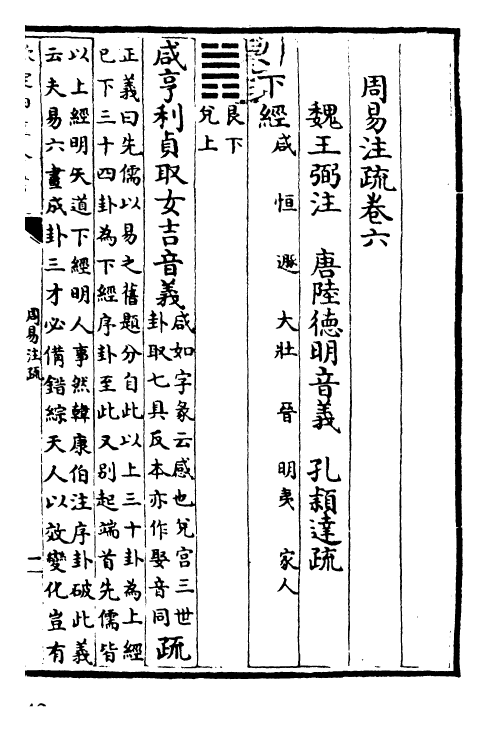 周易注疏卷六
魏王弼注　唐陸德明音義　孔穎達疏
下經　咸　恒　遯　大壯　晉　明夷　家人
艮下
兌上
咸亨利貞取女吉音義咸如字彖云感也兌宫三世
卦取七具反本亦作娶音同疏
正義曰先儒以易之舊題分自此以上三十卦為上經
已下三十四卦為下經序卦至此又别起端首先儒皆
以上經明天道下經明人事然韓康伯注序卦破此義
云夫易六畫成卦三才必備錯綜天人以效變化豈有
周易注疏
一